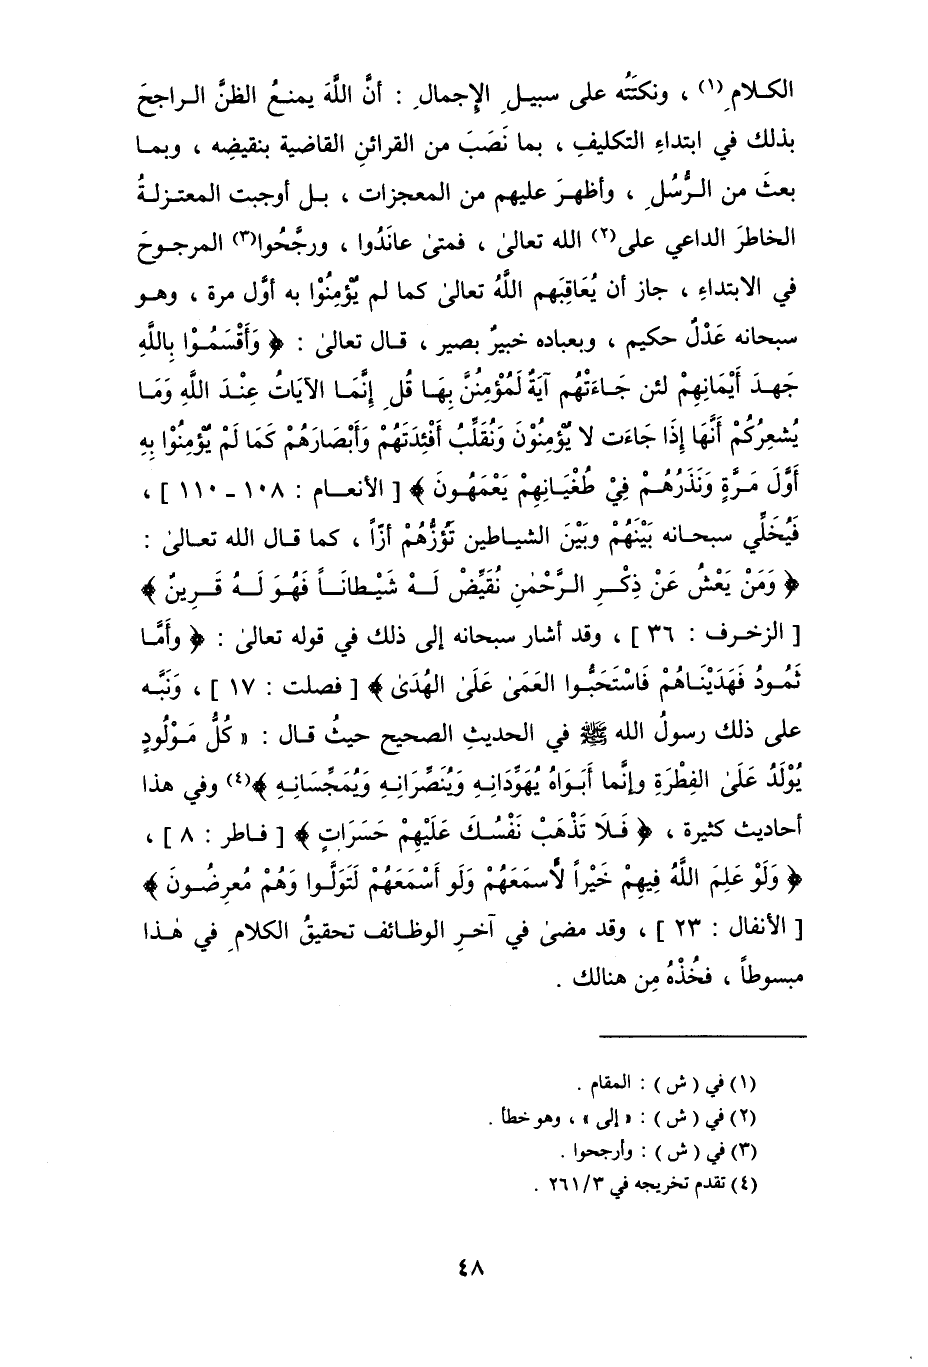 الكلام(١) ، ونكتَتُه على سبيلِ الإِجمالِ : أنَّ اللَّهَ يمنعُ الظنَّ الراجحَ
بذلك في ابتداءِ التكليفِ ، بما نَصَبَ من القرائنِ القاضية بنقيضِه ، وبما
بعثَ من الرُّسُلِ ، وأظهرَ عليهم من المعجزات ، بل أوجبت المعتزلةُ
الخاطرَ الداعي على(٢) الله تعالىٰ ، فمتىٰ عانَدُوا ، ورجَّحُوا(٣) المرجوحَ
في الابتداءِ ، جاز أن يُعَاقِبَهم اللَّهُ تعالىٰ كما لم يُؤمِنُوْا به أوَّل مرة ، وهو
سبحانه عَدْلٌ حكيم ، وبعباده خبيرٌ بصير ، قال تعالىٰ : ﴿ وَأَقْسَمُوْا بِاللَّهِ
جَهدَ أَيْمَانِهِمْ لئن جَاءَتْهُم آيَةٌ لَمُؤْمِنُنَّ بِهَا قُلِ إِنَّمَا الآيَاتُ عِنْدَ اللَّهِ وَمَا
يُشعِرُكُمْ أَنَّهَا إِذَا جَاءَت لا يُؤمِنُوْنَ وَنُقَلِّبُ أَفْئِدَتَهُمْ وَأَبْصَارَهُمْ كَمَا لَمْ يُؤمِنُوْا بِهِ
أَوَّلَ مَرَّةٍ وَنَذَرُهُمْ فِيْ طُغْيَانِهِمْ يَعْمَهُونَ ﴾ [ الأنعام : ١٠٨ ـ ١١٠ ] ،
فَيُخَلِّي سبحانه بَيْنَهُمْ وبَيْنَ الشياطين تَؤُزُّهُمْ أزّاً ، كما قال الله تعالىٰ :
﴿ وَمَنْ يَعْشُ عَنْ ذِكْرِ الرَّحْمٰنِ نُقَيِّضْ لَهُ شَيْطَانَاً فَهُوَ لَهُ قَرِينٌ ﴾
[ الزخرف : ٣٦ ] ، وقد أشار سبحانه إلى ذلك في قوله تعالىٰ : ﴿ وأَمَّا
ثَمُودُ فَهَدَيْنَاهُمْ فَاسْتَحَبُّوا العَمَىٰ عَلَىٰ الهُدَىٰ ﴾ [ فصلت : ١٧ ] ، وَنَبَّه
على ذلك رسولُ الله ﷺ في الحديثِ الصحيح حيثُ قال : « كُلُّ مَوْلُودٍ
يُوْلَدُ عَلَىٰ الفِطْرَةِ وإنَّما أَبَوَاهُ يُهَوِّدَانِهِ وَيُنَصِّرَانِهِ وَيُمَجِّسَانِهِ ﴾(٤) وفي هذا
أحاديث كثيرة ، ﴿ فَلَا تَذهَبْ نَفْسُكَ عَلَيْهِمْ حَسَرَاتٍ ﴾ [ فاطر : ٨ ] ،
﴿ وَلَوْ عَلِمَ اللَّهُ فِيهِمْ خَيْراً لأَسمَعَهُمْ وَلَو أَسْمَعَهُمْ لَتَولَّوا وَهُمْ مُعرِضُونَ ﴾
[ الأنفال : ٢٣ ] ، وقد مضىٰ في آخرِ الوظائف تحقيقُ الكلامِ في هٰذا
مبسوطاً ، فخُذْهُ مِن هنالك .
(١) في ( ش ) : المقام .
(٢) في ( ش ) : « إلى » ، وهو خطأ .
(٣) في ( ش ) : وأرجحوا .
(٤) تقدم تخريجه في ٢٦١/٣ .
٤٨